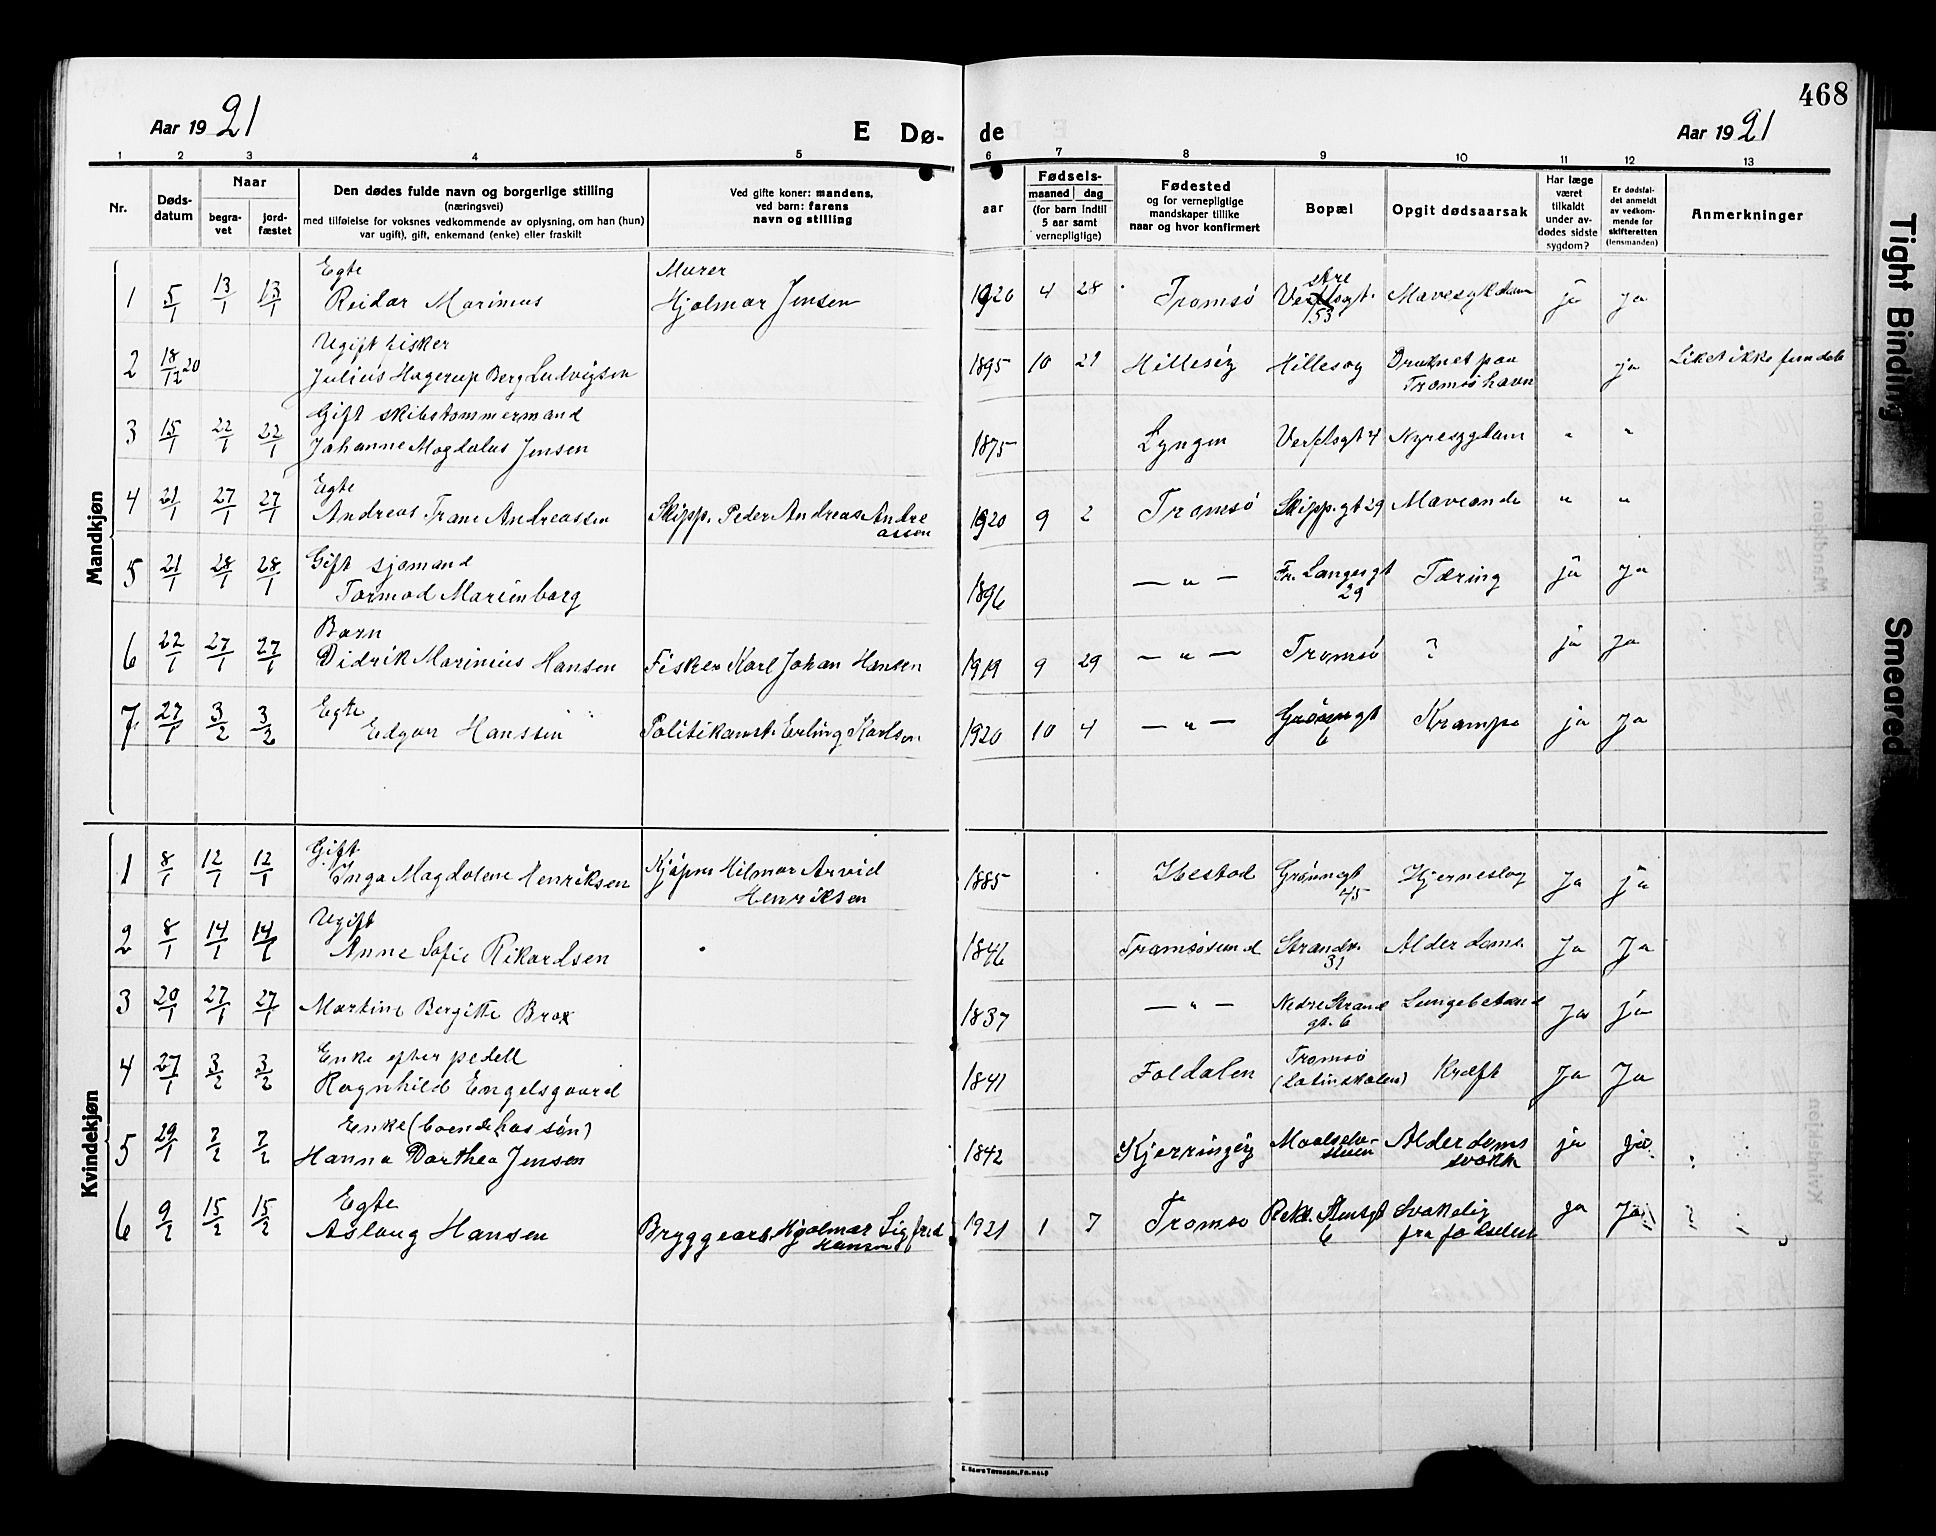 468
Aar 1921
E Dø-
de
Aar 1921
1 2 3 4 5 6 7 8 9 10 11 12 13
Nr.
Døds-
datum
Naar
begra-
vet
jord-
fæstet
Den dødes fulde navn og borgerlige stilling
(næringsvei)
med tilføielse for voksnes vedkommende av oplysning, om han (hun)
var ugift), gift, enkemand (enke) eller fraskilt
Ved gifte koner: mandens,
ved barn: farens
navn og stilling
aar
Fødsels-
maaned dag
(for barn indtil
5 aar samt
vernepligtige)
Fødested
og for vernepligtige
mandskaper tillike
naar og hvor konfirmert
Bopæl
Opgit dødsaarsak
Har læge
været
tilkaldt
under av-
dødes sidste
sygdom?
Er dødsfal-
det anmeldt
av vedkom-
mende for
skifteretten
(lensmanden)
Anmerkninger
Mandkjøn
Egte Murer
1 5/1 13/1 13/1 Reidar Marinius Hjalmar Jensen 1920 4 28 Tromsø 153 Mavesykdom ja ja
Ugift fisker
2 18/12 20 Julius Hagerup Berg Ludvigsen 1895 10 21 Hillesøy Hillesøy Druknet paa ja Liket ikke fundet
Tromsø havn
Gift skibstømmermand
3 15/1 22/1 22/1 Johanne Magdalus Jensen 1875 Lyngen Verftsgt 4 Nyresygdom " "
Egte
4 21/1 27/1 27/1 Andreas Trane Andreassen Skipp. Peder Andreas Andre 1920 9 2 Tromsø Skipp.gt 29 Maveonde " "
assen
Gift sjømand
5 21/1 28/1 28/1 Tormod Marienborg 1896 — " — Fr. Langesgt Tæring ja ja
29
Barn
6 22/1 27/1 27/1 Didrik Marinius Hansen Fisker Karl Johan Hansen 1919 9 29 — " — Tromsø ? ja ja
Egte
7 27/1 3/2 3/2 Edgar Hanssen Politikonst. Erling Karlsen 1920 10 4 — " — Grønnegt Krampe ja ja
6
Kvindekjøn
Gift
1 8/1 12/1 12/1 Inga Magdalene Henriksen Kjøpm Hilmar Arvid 1885 Ibestad Grønnegt Hjerneslag ja ja
Henriksen 45
Ugift
2 8/1 14/1 14/1 Anne Sofie Rikardsen 1846 Tromsøsund Strandv. Alderdoms. Ja Ja
31
3 20/1 27/1 27/1 Martine Bergitte Brox 1837 — " — Nedre Strand Lungebetænd Ja ja
gt. 6
Enke efter pedell Tromsø
4 27/1 3/2 3/2 Ragnhild Engelsgaard 1841 Foldalen (Latinskolen) Kræft Ja Ja
Enke (boende hos søn)
5 29/1 7/2 7/2 Hanna Dorthea Jensen 1842 Kjerringøy Maalselv- Alderdoms ja ja
svakh
Egte
6 9/2 15/2 15/2 Aslaug Hansen Bryggearb. Hjalmar Sigfrid 1921 1 7 Tromsø Svakelig ja Ja
Hansen 6 fra fødselen
E. Sem's Trykkeri, Fr.hald
Tight Binding
Smeared